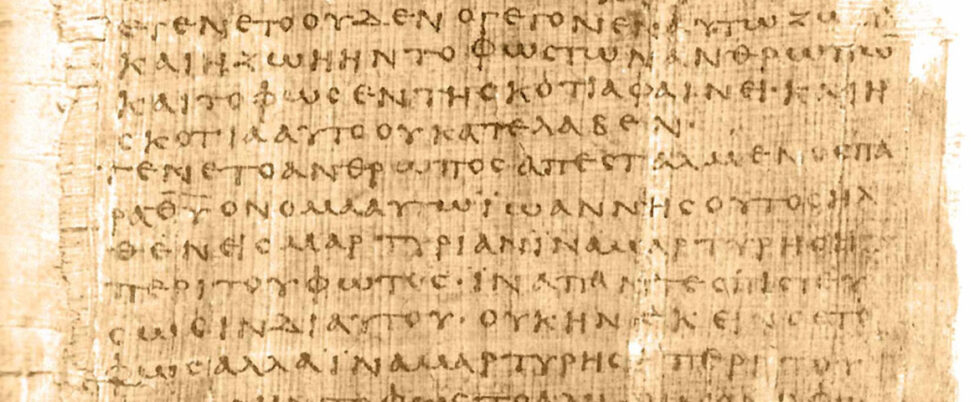 ΕΓΕΝΕΤΟΟΥΔΕΝΟΓΕΓΟΝΕΝΑΥΤΩΖΩ
ΚΑΙΗΖΩΗΗΝΤΟΦΩϹΤΩΝΑΝΘΡΩΠΩ
ΚΑΙΤΟΦΩϹΕΝΤΗϹΚΟΤΙΑΦΑΙΝΕΙ·ΚΑΙΗ
ϹΚΟΤΙΑΑΥΤΟΟΥΚΑΤΕΛΑΒΕΝ·
·ΓΕΝΕΤΟΑΝΘΡΩΠΟϹΑΠΕϹΤΑΛΜΕΝΟϹΠΑ
ΡΑΘ̅Υ̅ΟΝΟΜΑΑΥΤΩΪΩΑΝΝΗϹΟΥΤΟϹΗΛ
ΘΕΝΕΙϹΜΑΡΤΥΡΙΑΝΪΝΑΜΑΡΤΥΡΗϹΗ
ΠΕΡΙΤΟΥΦΩΤΟϹ·ΪΝΑΠΑΝΤΕϹΠΙϹΤΕΥ
ϹΩϹΙΝΔΙΑΥΤΟΥ·ΟΥΚΗΝΕΚΕΙΝΟϹΤΟ
ΦΩϹΑΛΛΑΪΝΑΜΑΡΤΥΡΗϹΗΠΕΡΙΤΟΥ